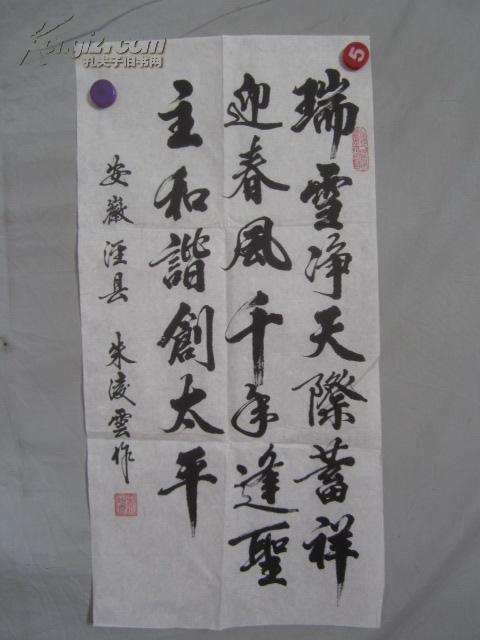 瑞雪净天際蓄祥
迎春風千年逢聖
主和諧創太平
安徽泾县 朱凌雲作
5
Kongfz.com
孔夫子旧书网